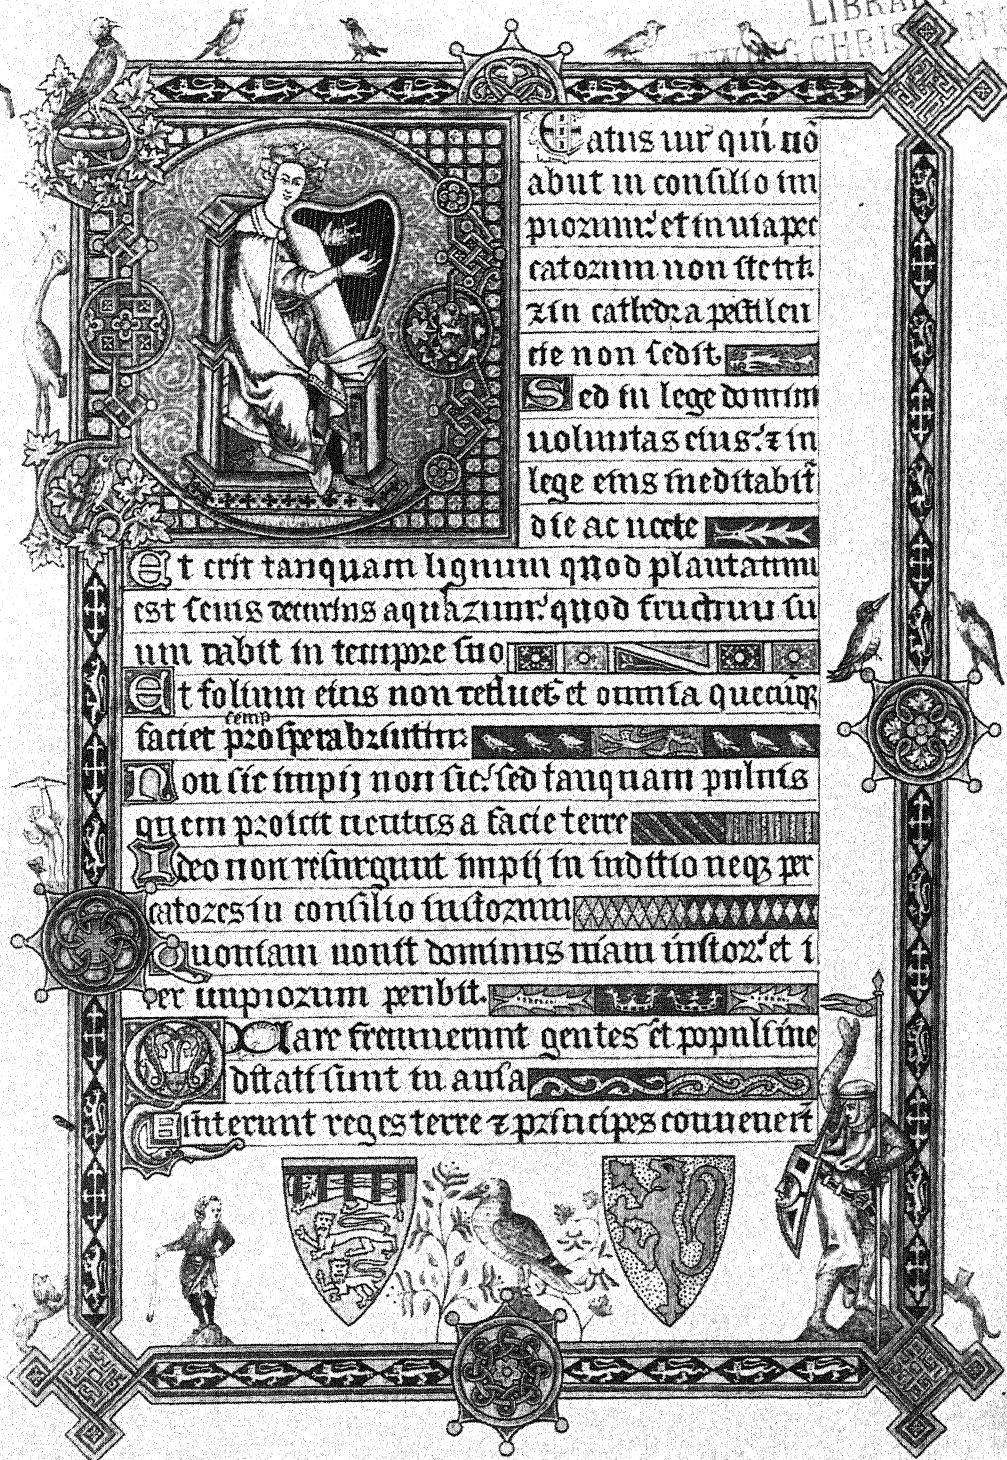 LIBRA
CHRIS AN
Eatus uir qui nō
abiit in consilio im
piorum: et in uia pec
catorum non stetit
⁊ in cathedra pestilen
tie non sedit.
Sed in lege domini
uoluntas eius: ⁊ in
lege eius meditabit̄
die ac nocte
Et erit tanquam lignum quod plantatum
est secus decursus aquarum: quod fructum su
um dabit in tempore suo
Et folium eius non defluet: et omnia quecūqꝫ
semp
faciet prosperabuntur
Non sic impij non sic: sed tanquam puluis
quem proicit uentus a facie terre
Ideo non resurgunt impij in iudicio neqꝫ pec
catores in consilio iustorum
Quoniam nouit dominus uiam iustoꝝ: et i
ter impiorum peribit.
Quare fremuerunt gentes: et populi me
ditati sunt inania
Astiterunt reges terre ⁊ principes conuenerūt